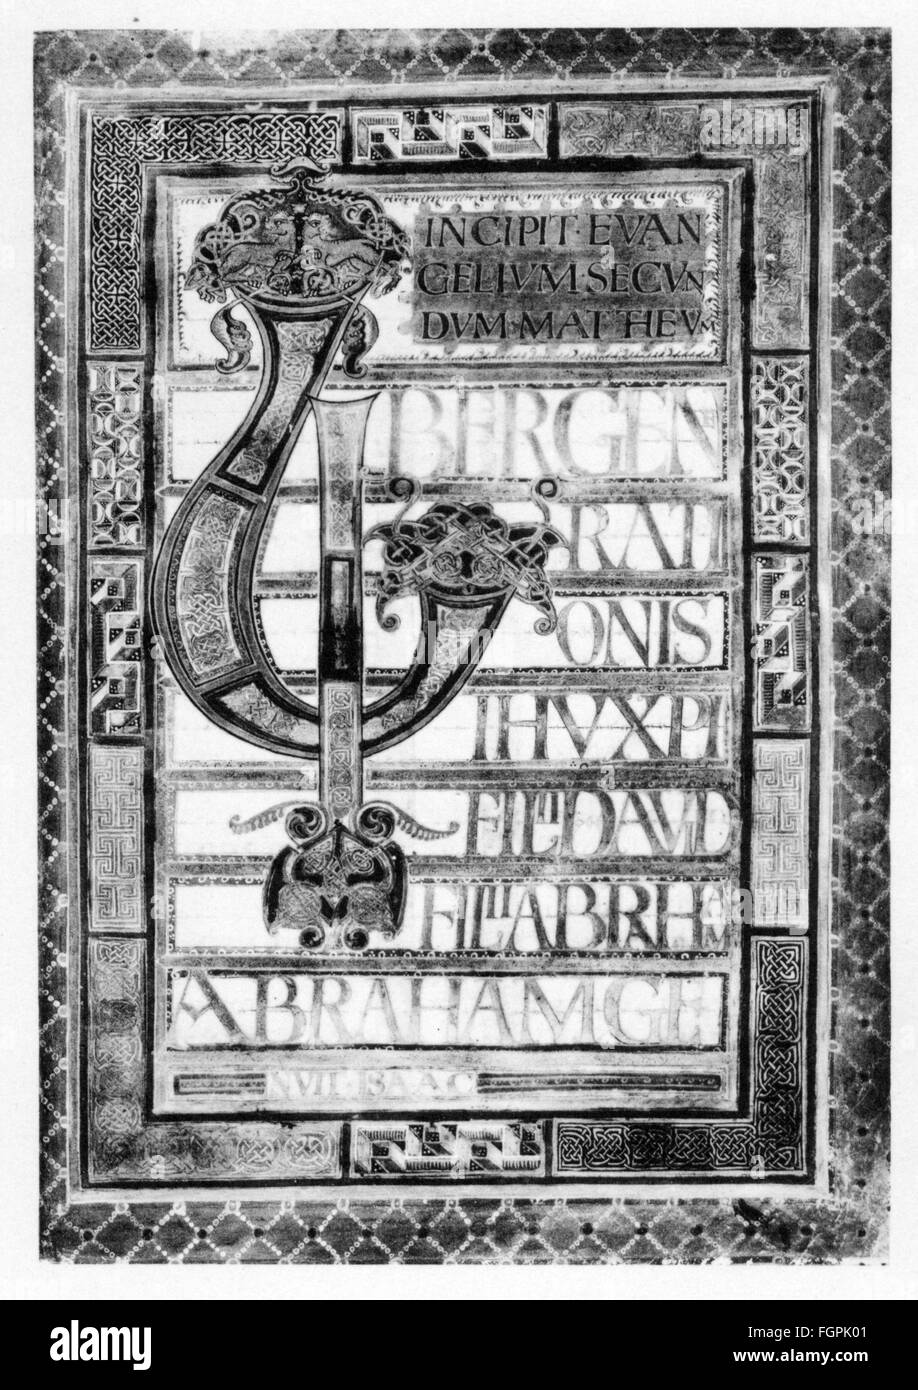 INCIPIT·EVAN
GELIUM·SECUN
DUM·MATTHEUM
LIBERGEN
ERATI
ONIS
IHUXPI
FILIIDAVID
FILIIABRAHAM
ABRAHAMGE
NUIT·ISAAC
alamy
alamy
Image ID: FGPK01
www.alamy.com